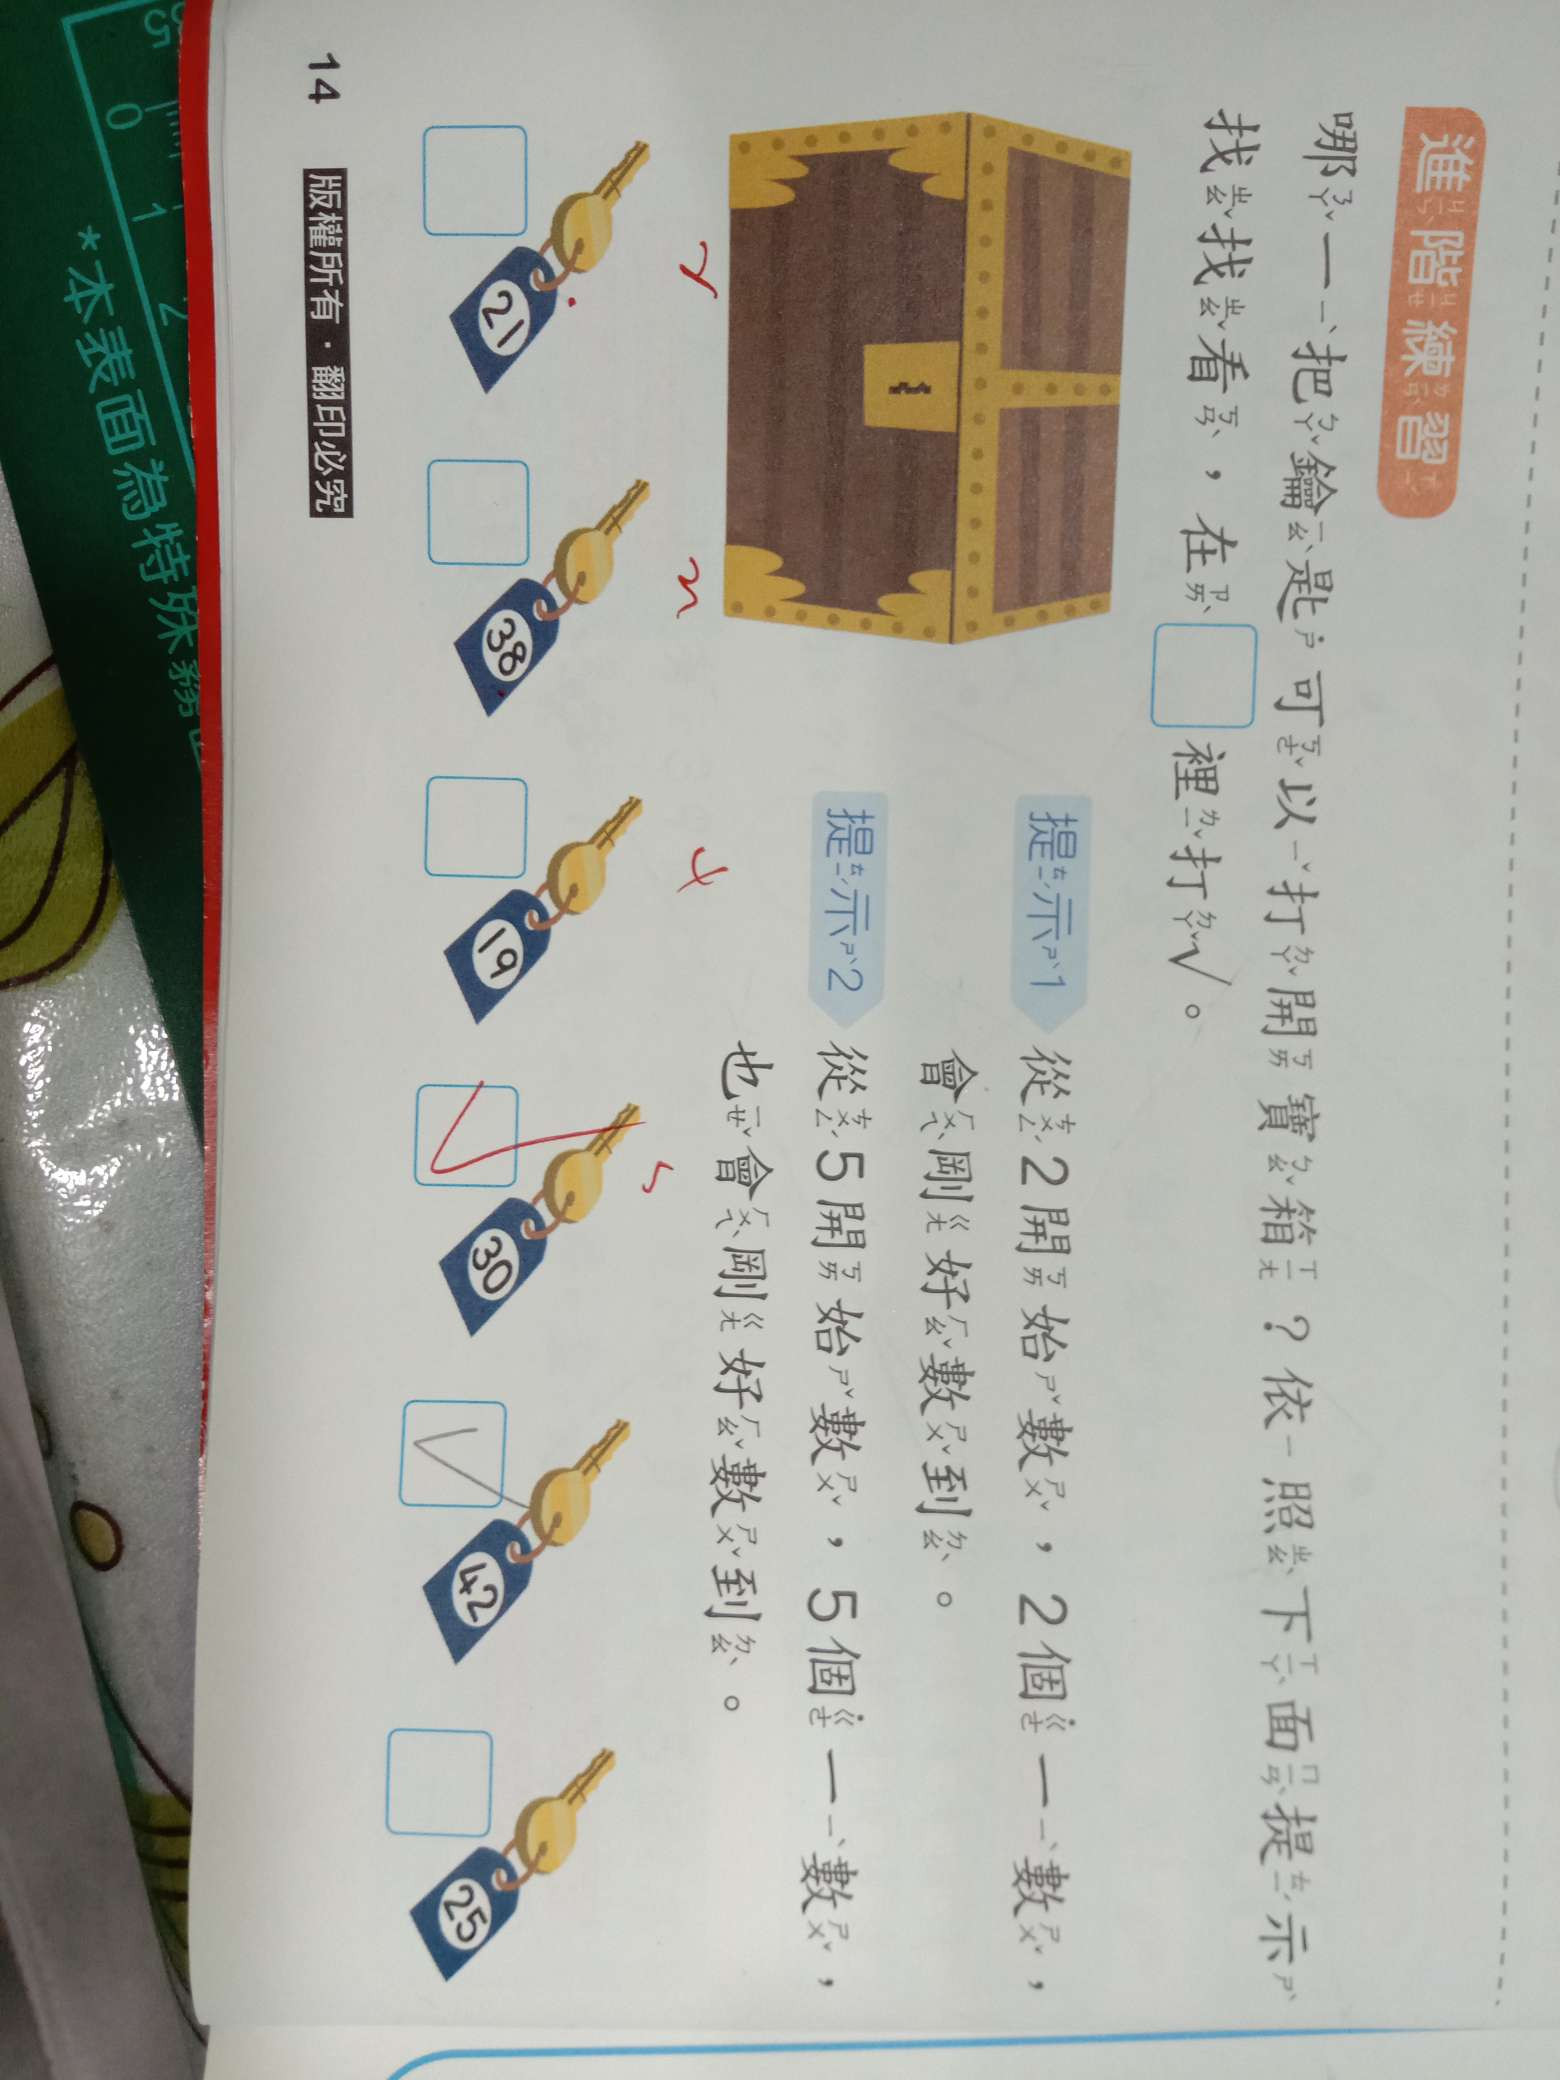 進階練習
哪一把鑰匙可以打開寶箱？依照下面提示
找找看，在□裡打✓。
提示1 從2開始數，2個一數，
會剛好數到。
提示2 從5開始數，5個一數，
也會剛好數到。
21 38 19 30 42 25
14 版權所有・翻印必究
0 1 2
*本表面為特殊霧